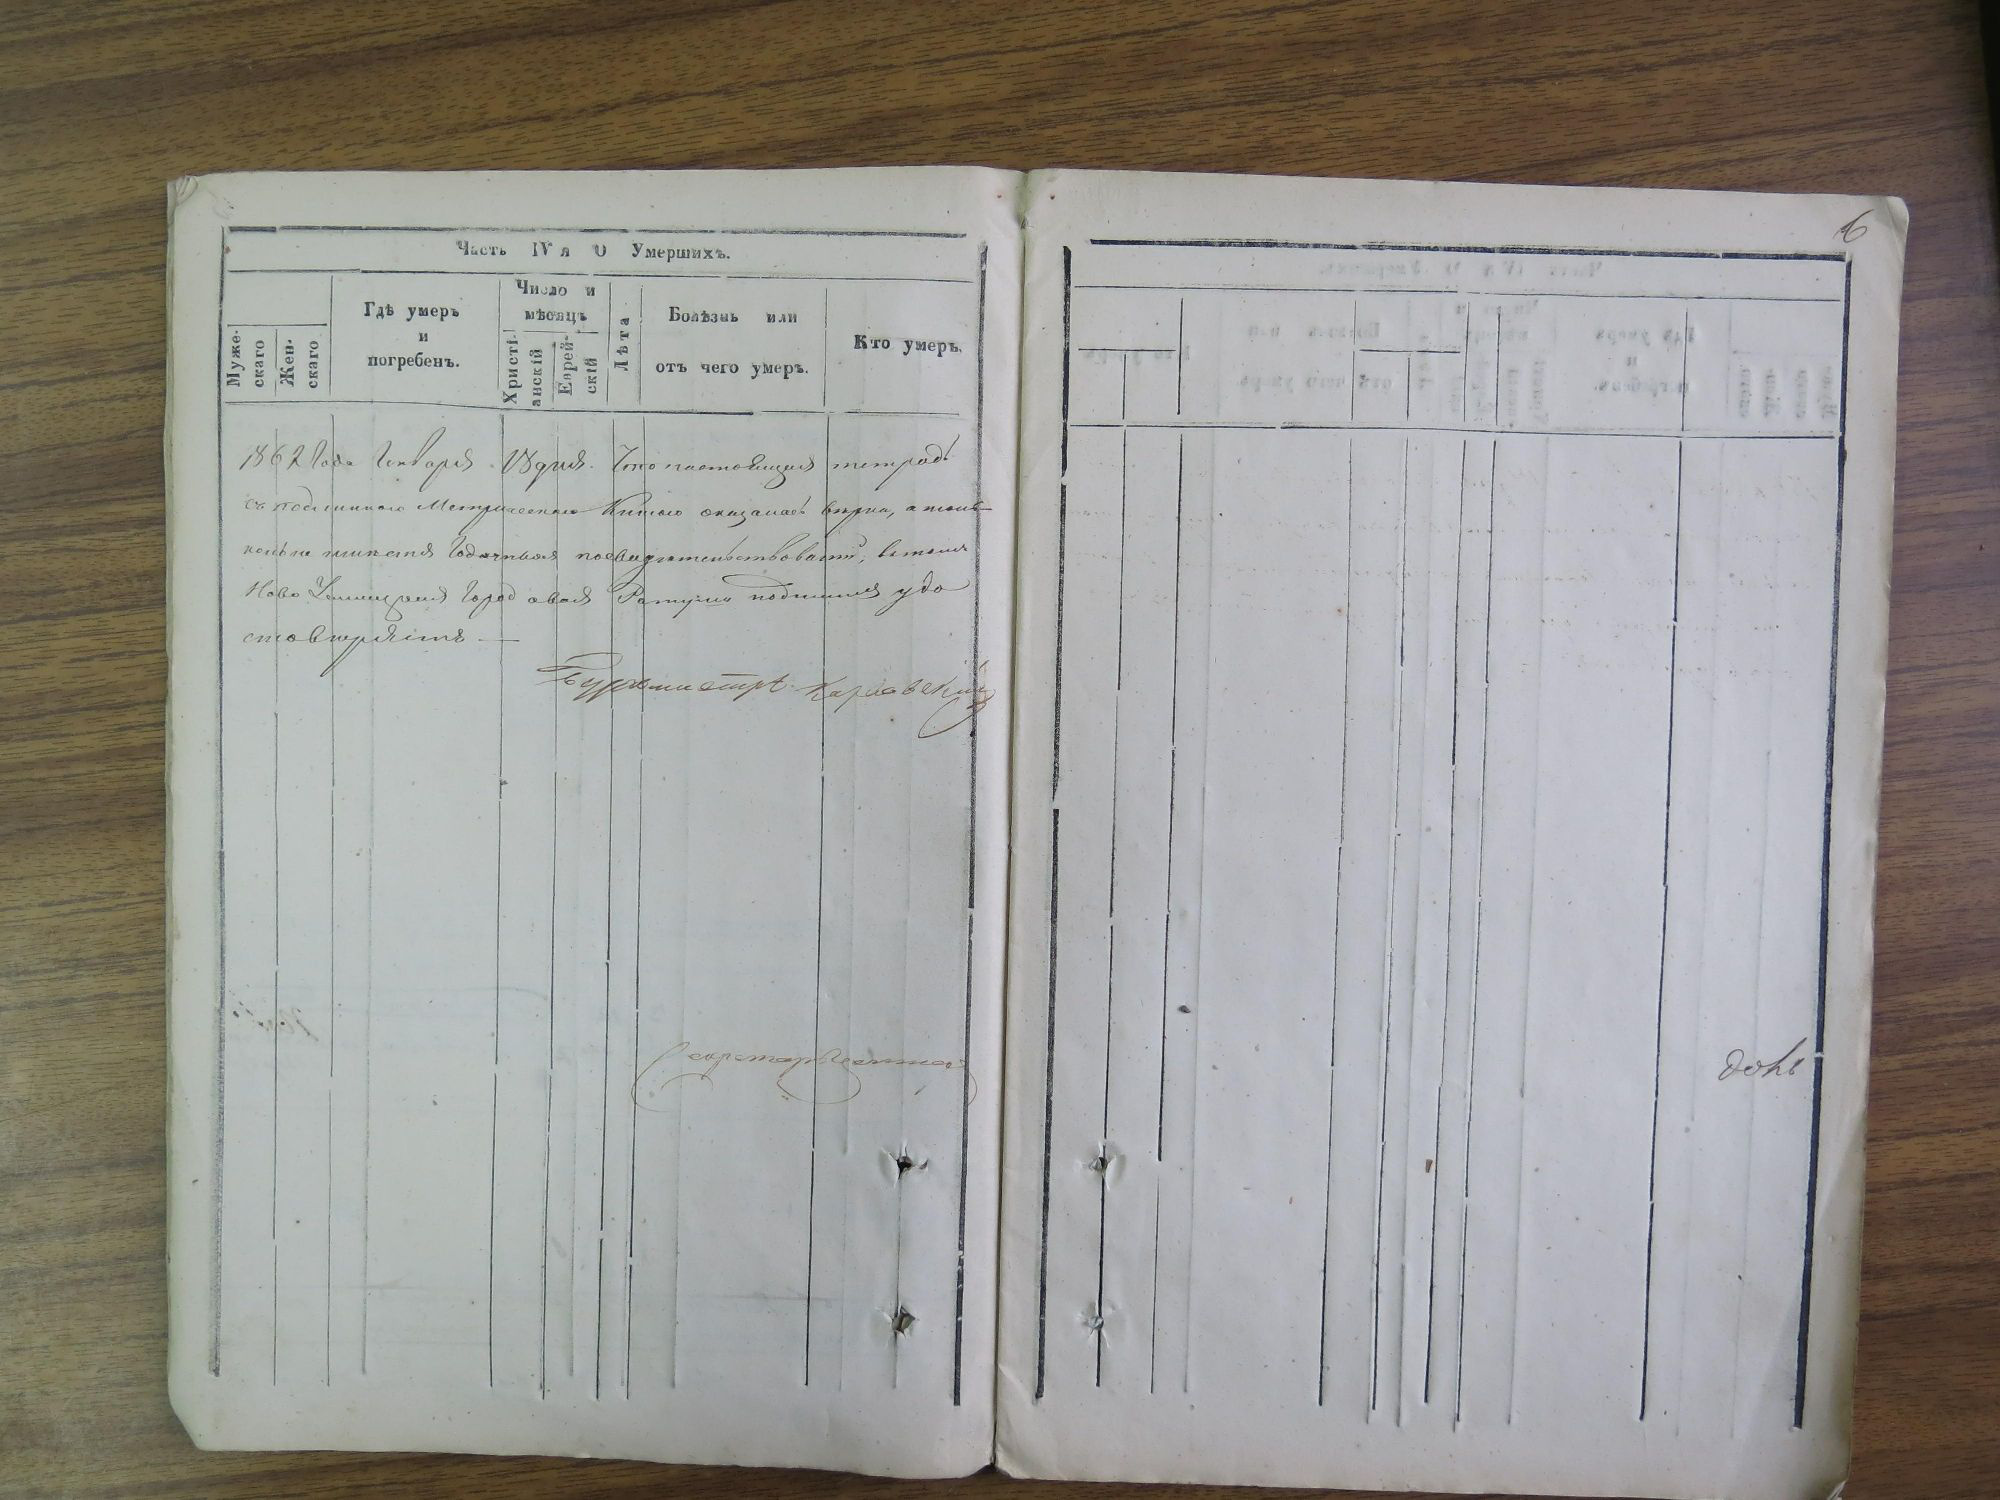 Часть IV я О Умершихъ.
Муже-
скаго
Жен-
скаго
Где умеръ
и
погребенъ.
Число и
мѣсяцъ
Христі-
анскій
Еврей-
скій
Лѣта
Болѣзнь или
отъ чего умеръ.
Кто умеръ.
1862 Года Января 18 дня. Что настоящая тетрадь
съ подлинною Метрическою Книгою оказалась вѣрна, а
посвидѣтельствовать, въ томъ
Ново Ушицкая Городовая Ратуша подписомъ удо
стовѣряетъ. —
Бурмистръ Карловскій
Секретарь
6
докь